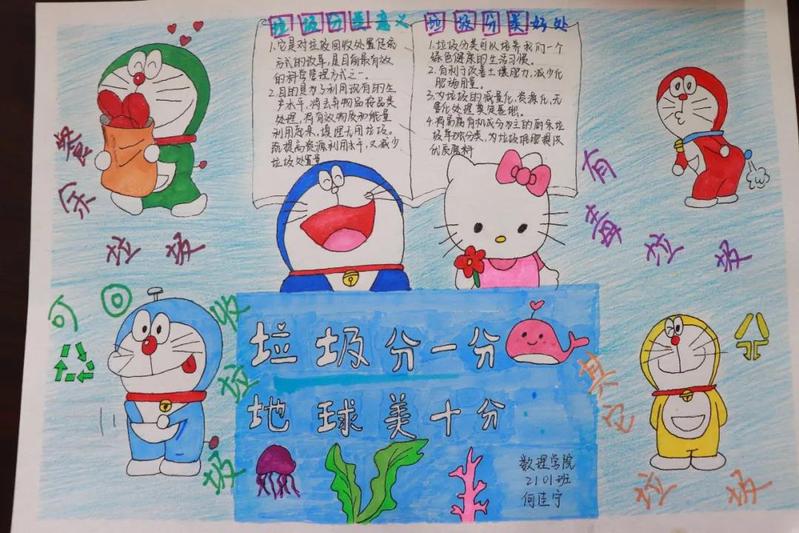 垃圾分类意义
1.它是对垃圾回收处置传统
方式的改革,是目前最有效
的科学管理方式之一。
2.目的是为了利用现有的生
产水平,将丢弃物品按品类
处理,将有效物质和能量
利用起来,填埋无用垃圾。
既提高资源利用水平,又减少
垃圾处置量
垃圾分类好处
1.垃圾分类可以培养我们一个
绿色健康的生活习惯。
2.有利于改善土壤肥力,减少化
肥施用量。
3.为垃圾的减量化,资源化,无
害化处理奠定基础。
4.将易腐有机成分为主的厨余垃
圾单独分类,为垃圾堆肥提供
优质原料
餐余垃圾
有毒垃圾
可回收垃圾
其它垃圾
垃圾分一分
地球美十分
数理学院
2101班